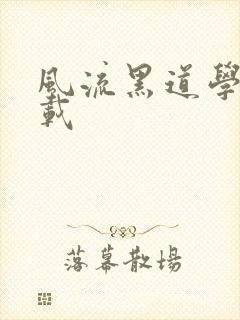 風流黑道學
載
落幕散場